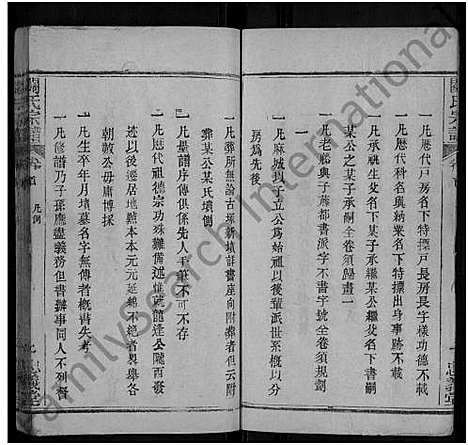 關氏宗譜
卷首
一凡歷代戶房名下特摽戶長房長字樣功德不載
一凡歷代科名與納粟名下特摽出身事跡不載
一凡承祧父名下書某子承繼某公繼父名下書嗣
某公之某子承嗣全卷須歸畫一
一凡老派與子藤都書派字不書字號全卷須規劃
一凡麻城以下立公為始祖以後輩派世系概以分
房爲先後
一凡葬所無論古塚新墳註書座向附葬者但云附
葬某公某氏墳側
一凡量譜序傳俱係先人手筆不可不存
一凡歷代祖德宗功殊難備述惟蔭龍逄公隴西發
迹以後遷居地點本本元元延綿不絶者製舉各
朝敕公毋庸博採
一凡生卒年月墳墓名字無傳者概書失考
一凡修譜乃子孫應盡義務但書辦事同人不列督
關氏宗譜
卷首
凡例
忠義堂
FamilySearch International